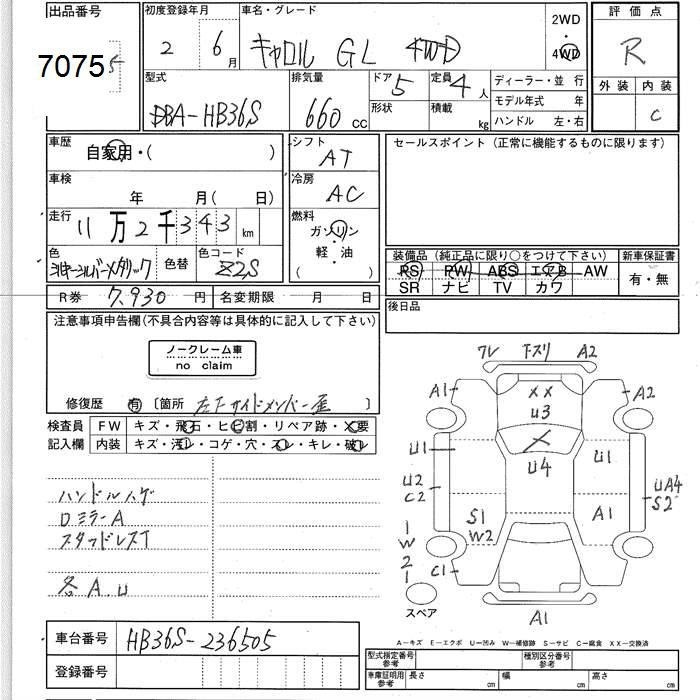 出品番号
初度登録年月
車名・グレード
2WD
・
4WD
評価点
7075
2 年 6 月
キャロル GL 4WD
R
型式
排気量
ドア 5
定員 4 人
ディーラー・並 行
外装 内装
DBA-HB36S
660 cc
形状
積載 kg
モデル年式 年
ハンドル 左・右
C
車歴
自家用・( )
シフト
AT
セールスポイント (正常に機能するものに限ります)
車検
年 月( 日)
冷房
AC
走行
11万2千343 km
燃料
ガソリン
・
軽・油
( )
色
シルキーシルバーメタリック
色替
色コード
Z2S
装備品 (純正品に限り○をつけて下さい)
新車保証書
PS PW ABS エアB AW
SR ナビ TV カワ
有・無
R券 7,930 円
名変期限 月 日
後日品
注意事項申告欄(不具合内容等は具体的に記入して下さい)
ノークレーム車
no claim
修復歴 有 〔箇所 左下サイドメンバー歪 〕
検査員
記入欄
FW キズ・飛石・ヒビ割・リペア跡・X要
内装 キズ・汚レ・コゲ・穴・スレ・キレ・破レ
ハンドルハゲ
Dミラー A
スタッドレスT
各 A.U
ワレ 下スリ A2
A1 A2
XX
U3
U1 U4 U1
U2
C2
UA4
S2
S1
W2
A1
1
W
2
1
C1
スペア
A1
A―キズ E―エクボ U―凹み W―補修跡 S―サビ C―腐食 XX―交換済
車台番号 HB36S-236505
登録番号
型式指定番号
参考
種別区分番号
参考
車庫証明用
参考
長さ cm
幅 cm
高さ cm